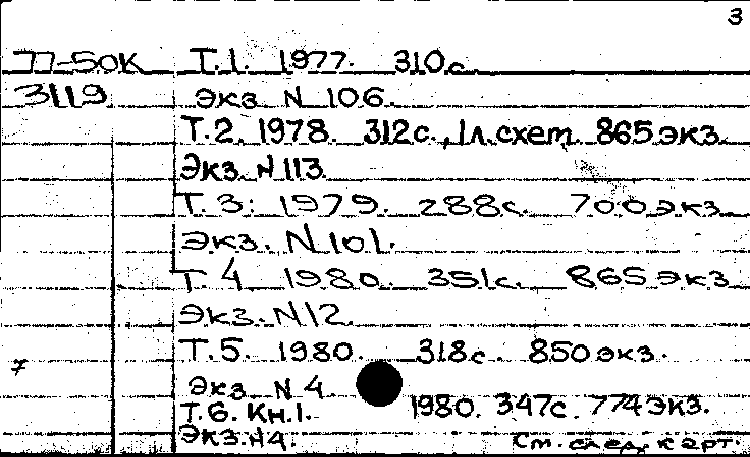 3
77-50К Т.1. 1977. 310с.
3119 Экз N 106.
Т.2. 1978. 312с., 1л.схем. 865экз.
Экз. N 113.
Т. 3. 1979. 288с. 700экз.
Экз. N 101.
Т. 4 1980. 351с. 865экз
Экз. N 12.
Т. 5. 1980. 318с. 850экз.
Экз N 4.
Т.6. Кн.1. 1980. 347с. 774экз.
Экз. N 4.
См. след. карт.